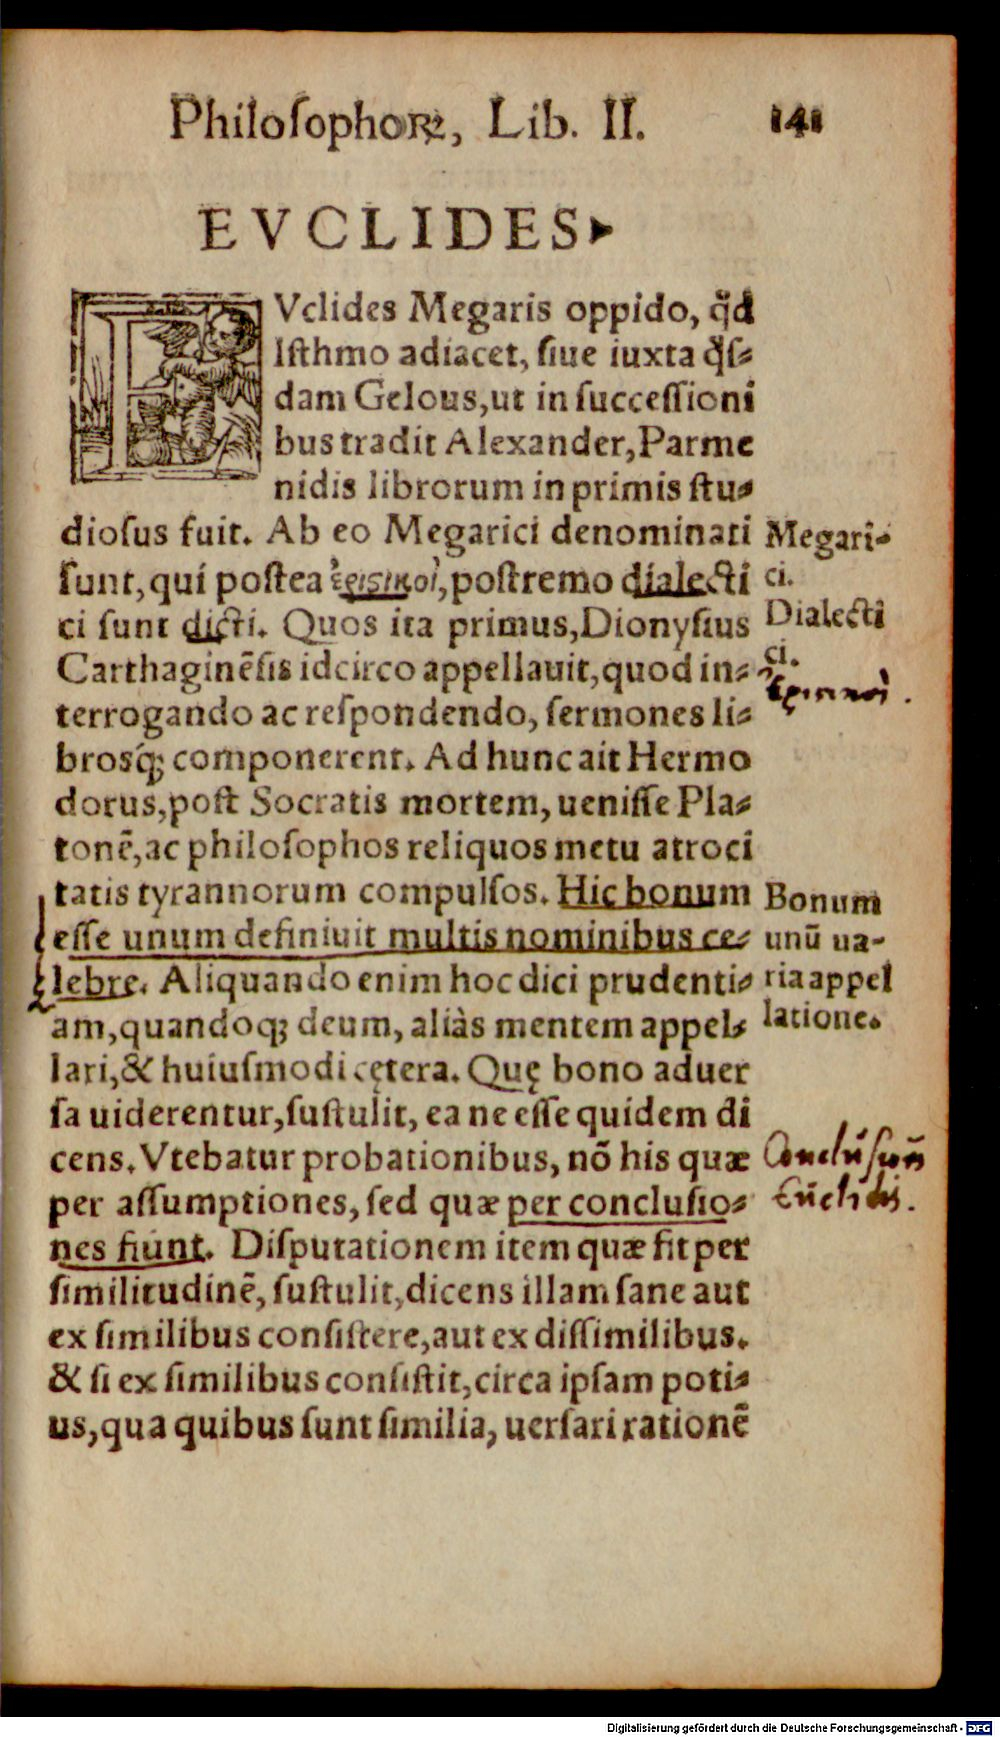 Philoſophoꝝ, Lib. II. 141
EVCLIDES▸
EVclides Megaris oppido, ꝙd
Iſthmo adiacet, ſiue iuxta ꝗſ⸗
dam Gelous,ut in ſucceſſioni
bus tradit Alexander,Parme
nidis librorum in primis ſtu⸗
dioſus fuit. Ab eo Megarici denominati
ſunt,qui poſtea ἐριστικοὶ,poſtremo dialecti
ci ſunt dicti. Quos ita primus,Dionyſius
Carthaginēſis idcirco appellauit,quod in⸗
terrogando ac reſpondendo, ſermones li⸗
broſq́; componerent. Ad hunc ait Hermo
dorus,poſt Socratis mortem, ueniſſe Pla⸗
tonē,ac philoſophos reliquos metu atroci
tatis tyrannorum compulſos. Hic bonum
eſſe unum definiuit multis nominibus ce⸗
lebre. Aliquando enim hoc dici prudenti⸗
am,quandoq; deum, aliàs mentem appel⸗
lari,& huiuſmodi cętera. Quę bono aduer
ſa uiderentur,ſuſtulit, ea ne eſſe quidem di
cens. Vtebatur probationibus, nō his quæ
per aſſumptiones, ſed quæ per concluſio⸗
nes fiunt. Diſputationem item quæ fit per
ſimilitudinē, ſuſtulit,dicens illam ſane aut
ex ſimilibus conſiſtere,aut ex diſſimilibus.
& ſi ex ſimilibus conſiſtit,circa ipſam poti⸗
us,qua quibus ſunt ſimilia, uerſari rationē
Megari⸗
ci.
Dialecti
ci.
ἐριστικοὶ.
Bonum
unū ua-
ria appel
latione.
Concluſiones
Euclidis.
Digitalisierung gefördert durch die Deutsche Forschungsgemeinschaft - DFG